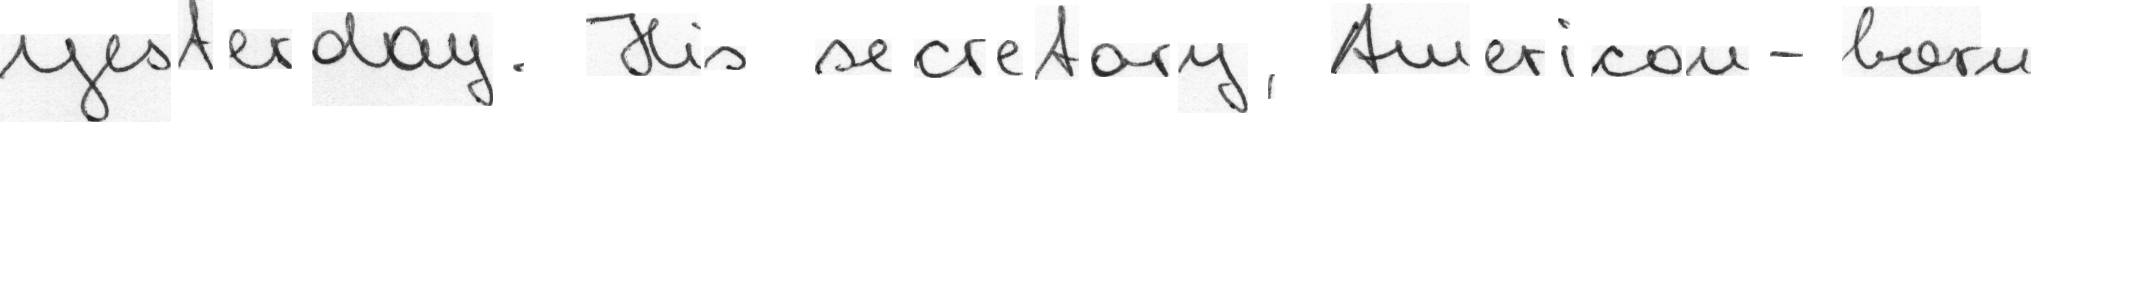 yesterday. His secretary, American-born